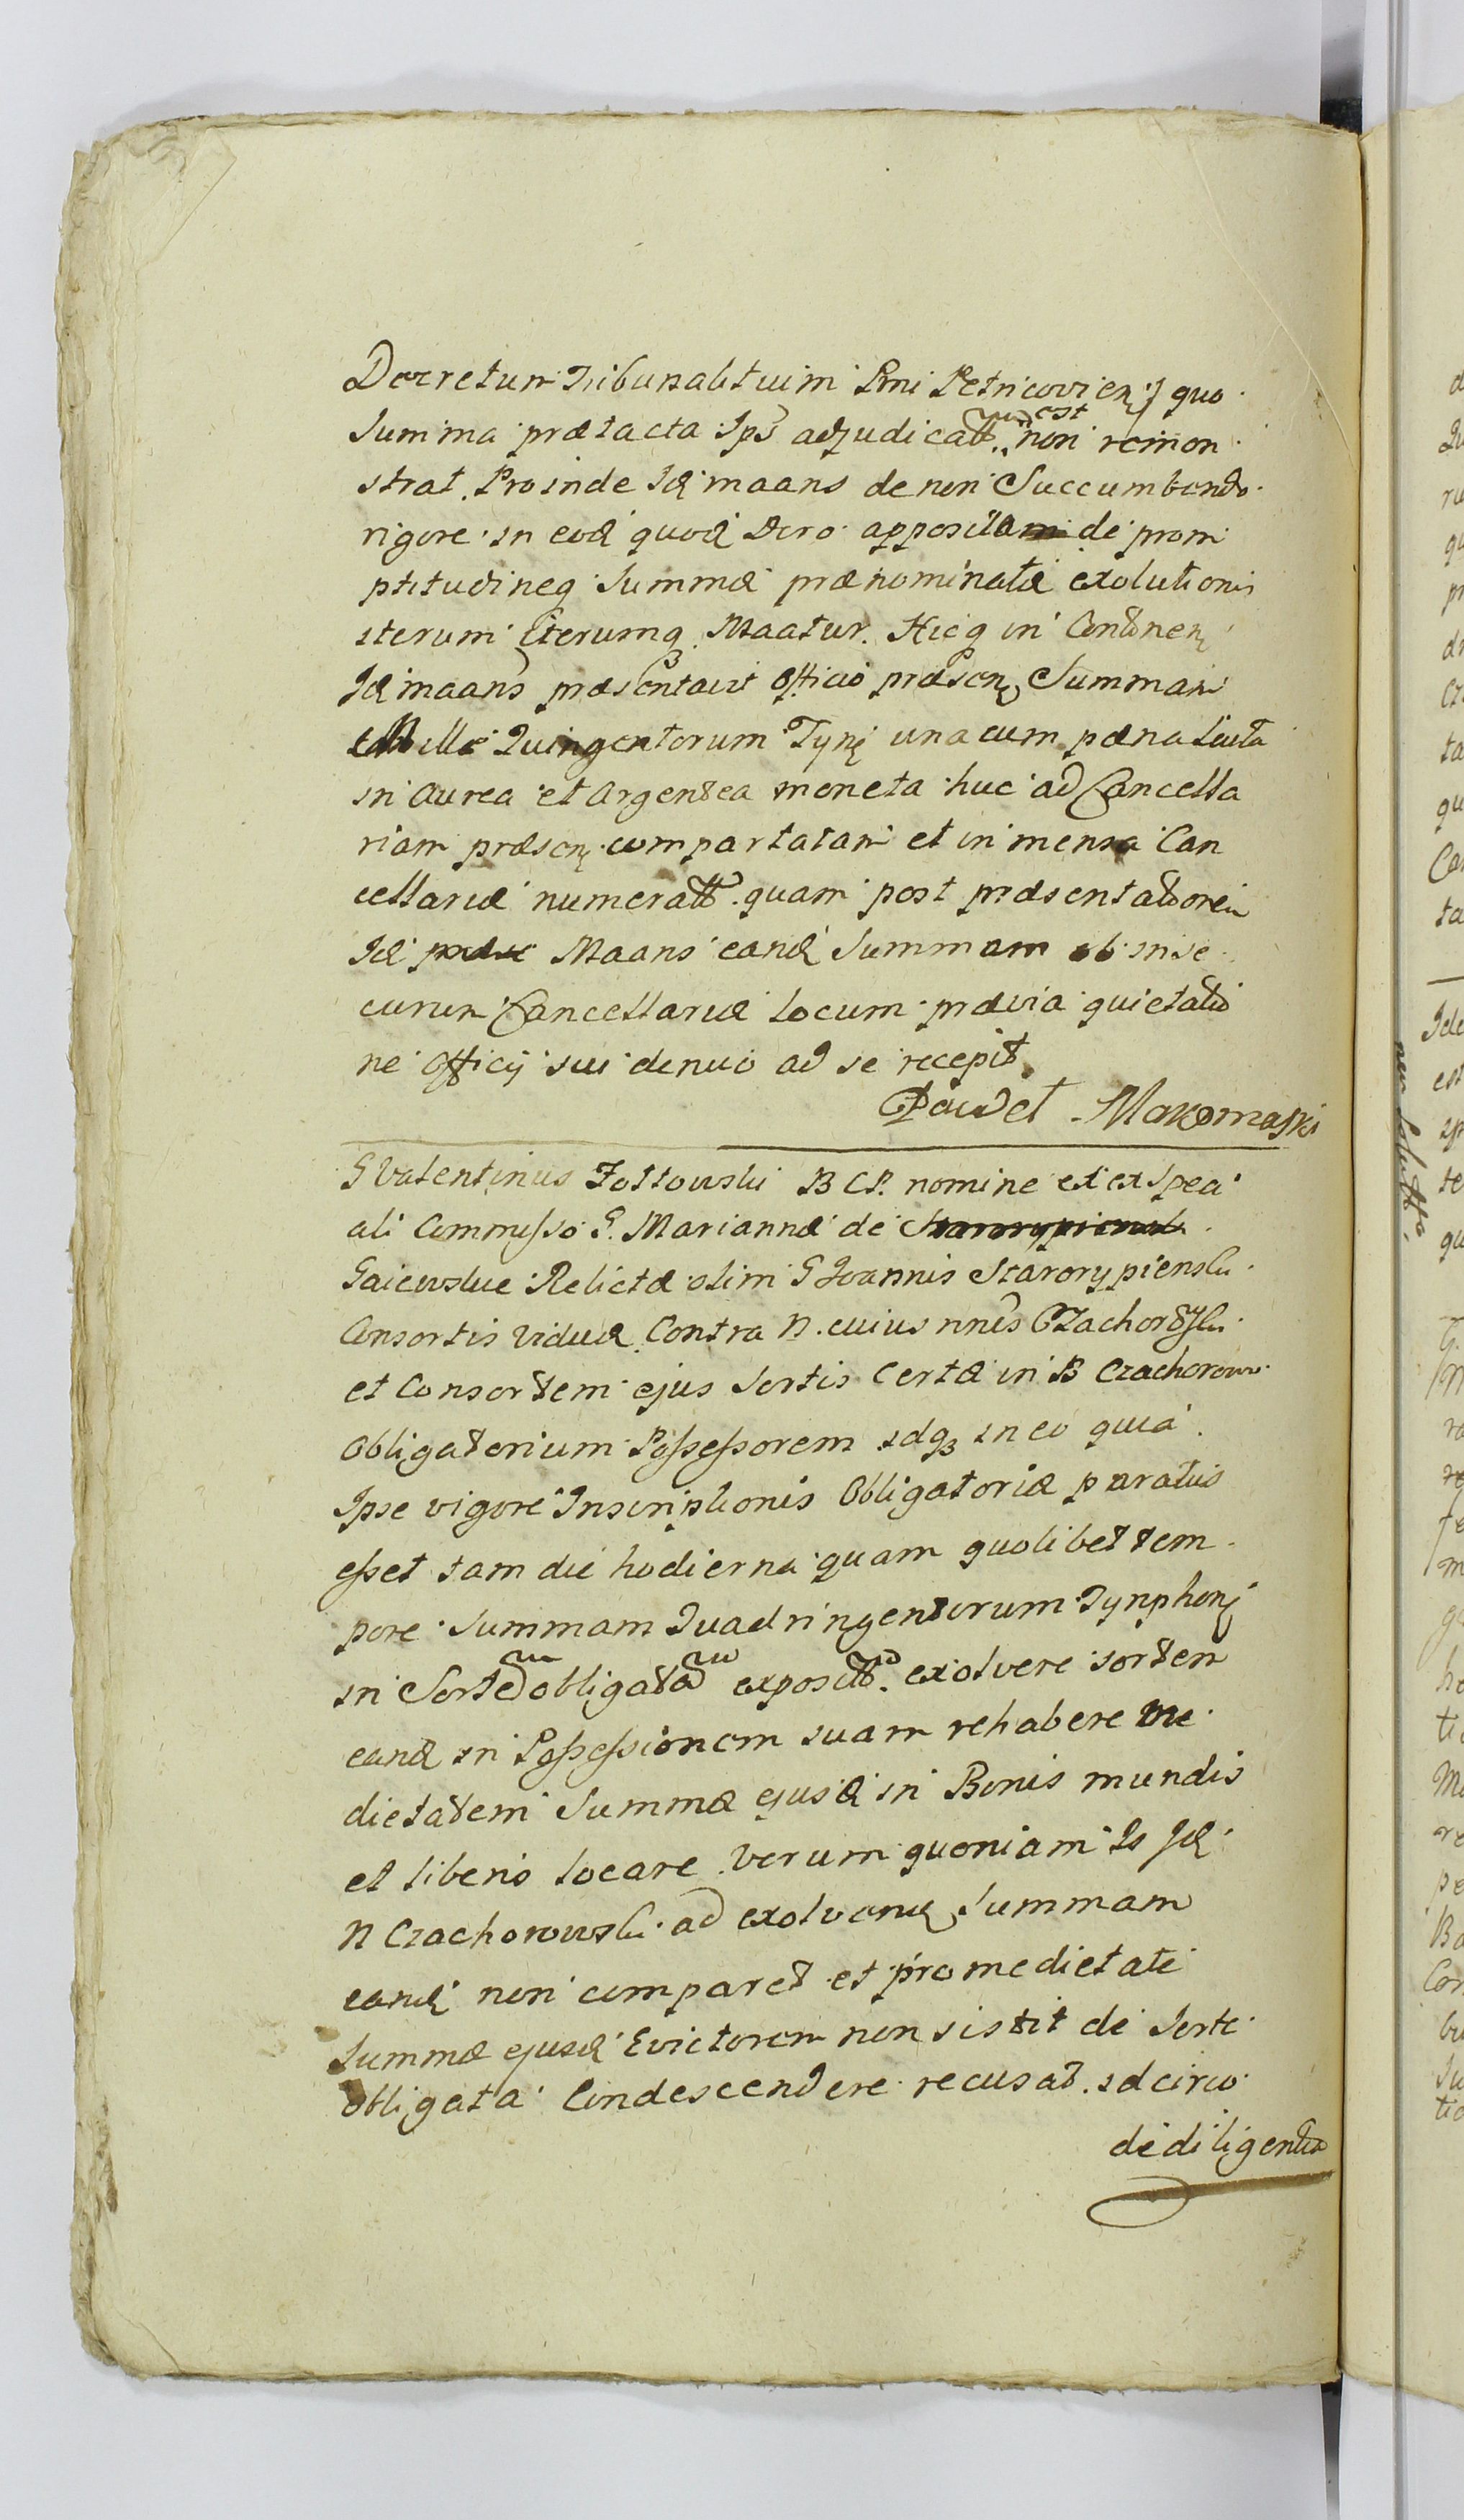 Decretum Tribunalituim Prni Petricovien quo
Summa prætacta Ips adjudicatt est non remon
strat. Proinde Id maans de non Succumbendo
rigore in eod quod Dcro apposita de prom
ptitudineq Summæ prænominatæ exolutionis
iterum Iterumq Maatur. Hicq in Continen
Id maans præsentavit Officio præsen Summam
Mille Quingentorum Tyn una cum pæna licita
in Aurea et Argentea moneta huc ad Cancella
riam præsen compartatam et in mensa Can
cellariæ numeratt. quam post præsentationem
Id Maans eand Summam ob inse
curum Cancellariæ locum prævia quietatio
ne Officij sui denuo ad se recepit
Pawel Makomaski
G Valentinus Zoltowski B C P. nomine et ex speci
ali Commisso G. Mariannæ de
Gaiewskie Relictæ olim G Joannis Starorypienski
Consortis Viduæ Contra N. cuius nnis Czachorowski
et Consortem ejus Sortis Certæ in B Czachorowo
Obligatorium Possessorem idq3 in eo quia
Ipse vigore Inscriptionis Obligatoriæ paratus
esset tam die hodierna quam quolibet tem
pore Summam Quadringentorum Tynphon
in Sorte obligata exposit. exolvere sortem
eand in Possessionem suam rehabere me
dietatem Summæ ejusd in Bonis mundis
et liberis locare Verum quoniam Is Id
N Czachorowski ad exolvend Summam
eand non comparet et pro medietate
Summæ ejusd Evictorem non sistit de Sorte
obligata Condescendere recusat. idcirco
de diligentia